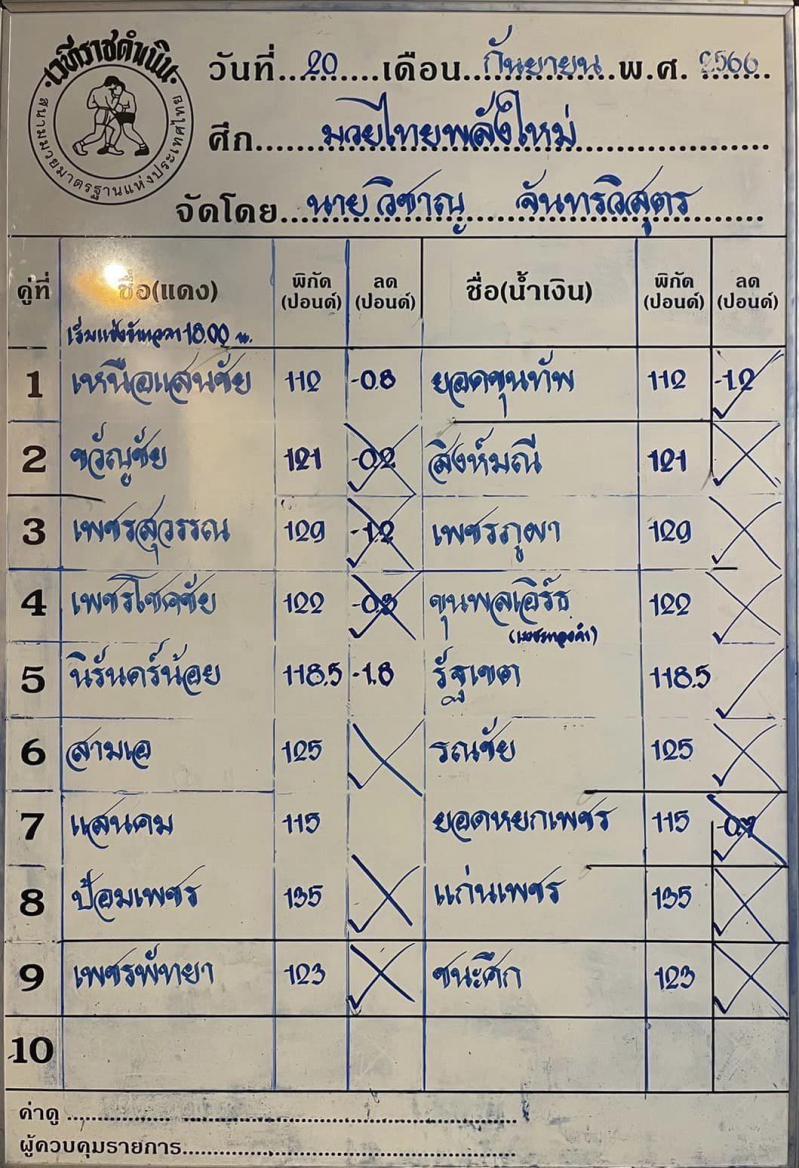 เวทีราชดำเนิน
สนามมวยมาตรฐานแห่งประเทศไทย
วันที่...20.....เดือน..กันยายน..พ.ศ. 2566
ศึก......มวยไทยพลังใหม่
จัดโดย...นาย วิชาญ จันทรวิสุตร
คู่ที่ ชื่อ(แดง) พิกัด (ปอนด์) ลด (ปอนด์) ชื่อ(น้ำเงิน) พิกัด (ปอนด์) ลด (ปอนด์)
เริ่มแข่งขันเวลา 18.00 น.
1 เหนือแสนชัย 112 -0.8 ยอดขุนทัพ 112 -1.2
2 ขวัญชัย 121 -0.2 สิงห์มณี 121
3 เพชรสุวรรณ 129 -1.2 เพชรภูผา 129
4 เพชรโชคชัย 122 ขุนพลเอิร์ธ 122
5 นิรันดร์น้อย 118.5 -1.8 รัฐเขต 118.5
6 สามเอ 125 รณชัย 125
7 แสนคม 115 ยอดหยกเพชร 115
8 ป้อมเพชร 135 แก่นเพชร 135
9 เพชรพัทยา 123 ชนะศึก 123
10
ค่าดู
ผู้ควบคุมรายการ